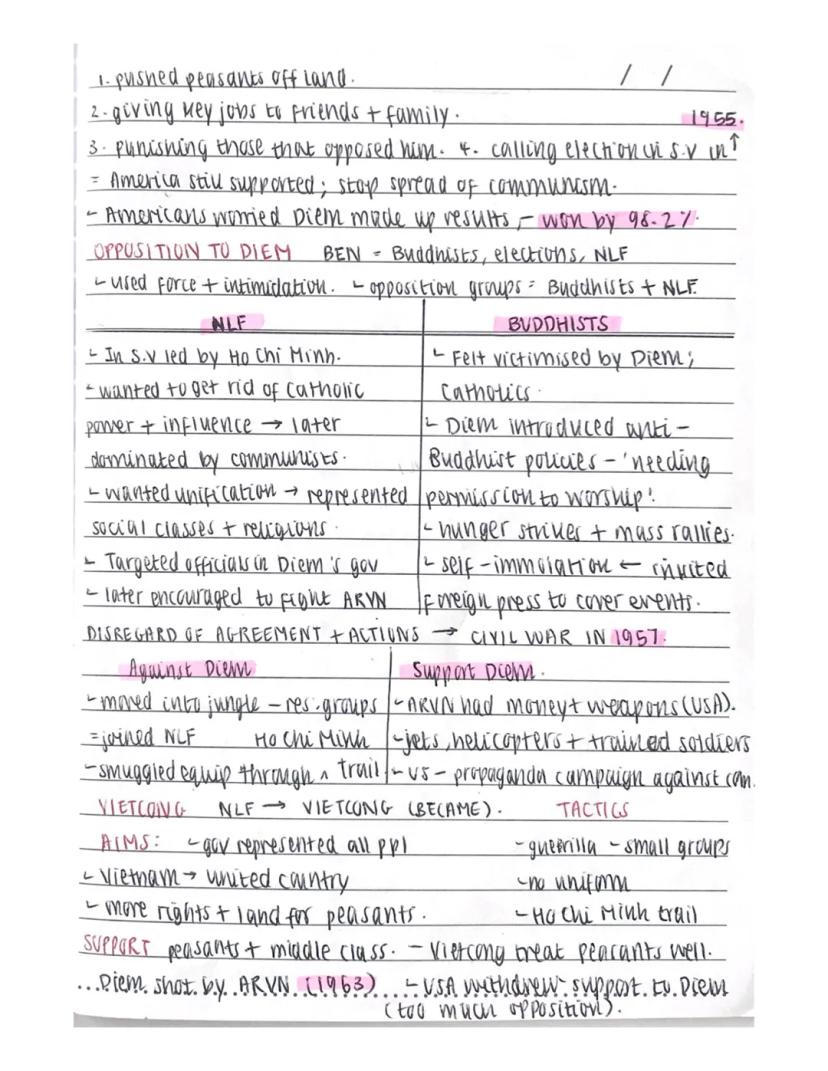 1. pushed peasants off land. / /
2. giving key jobs to friends + family. 1955.
3. punishing those that opposed him. 4. calling election in S.V in ↑
= America still supported; stop spread of communism.
- Americans worried Diem made up results, - won by 98.2%.
OPPOSITION TO DIEM BEN = Buddhists, elections, NLF
↳ used force + intimidation. ↳ opposition groups = Buddhists + NLF.
NLF
↳ In S.V led by Ho Chi Minh.
- wanted to get rid of Catholic
power + influence → later
dominated by communists.
↳ wanted unification → represented
social classes + religions.
↳ Targeted officials in Diem's gov
↳ later encouraged to fight ARVN
BUDDHISTS
↳ Felt victimised by Diem;
Catholics.
↳ Diem introduced anti-
Buddhist policies - 'needing
permission to worship'.
↳ hunger strikes + mass rallies.
↳ self-immolation ← invited
foreign press to cover events.
DISREGARD OF AGREEMENT + ACTIONS → CIVIL WAR IN 1957.
Against Diem
↳ moved into jungle - res. groups
= joined NLF Ho Chi Minh
- smuggled equip through ^ trail
Support Diem.
↳ ARVN had money + weapons (USA).
- jets, helicopters + trained soldiers
↳ US - propaganda campaign against com.
VIETCONG NLF → VIETCONG (BECAME). TACTICS
AIMS: ↳ gov represented all ppl - guerilla - small groups
↳ Vietnam → united country - no uniform
↳ more rights + land for peasants. - Ho Chi Minh trail
SUPPORT peasants + middle class. - Vietcong treat peasants well.
...Diem shot by ARVN (1963).... ↳ USA withdrew support to Diem
(too much opposition).